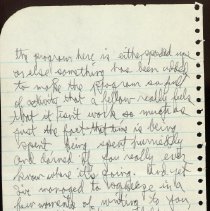 the program here is either geared up
or else something has been added
to make the program so full
of activity that a fellow really feels
that it isn't work so much as
just the fact that time is being
spent being spent furiously
and darned if you really ever
know where it's going. And yet
I've managed to in a
few moments of writing to you